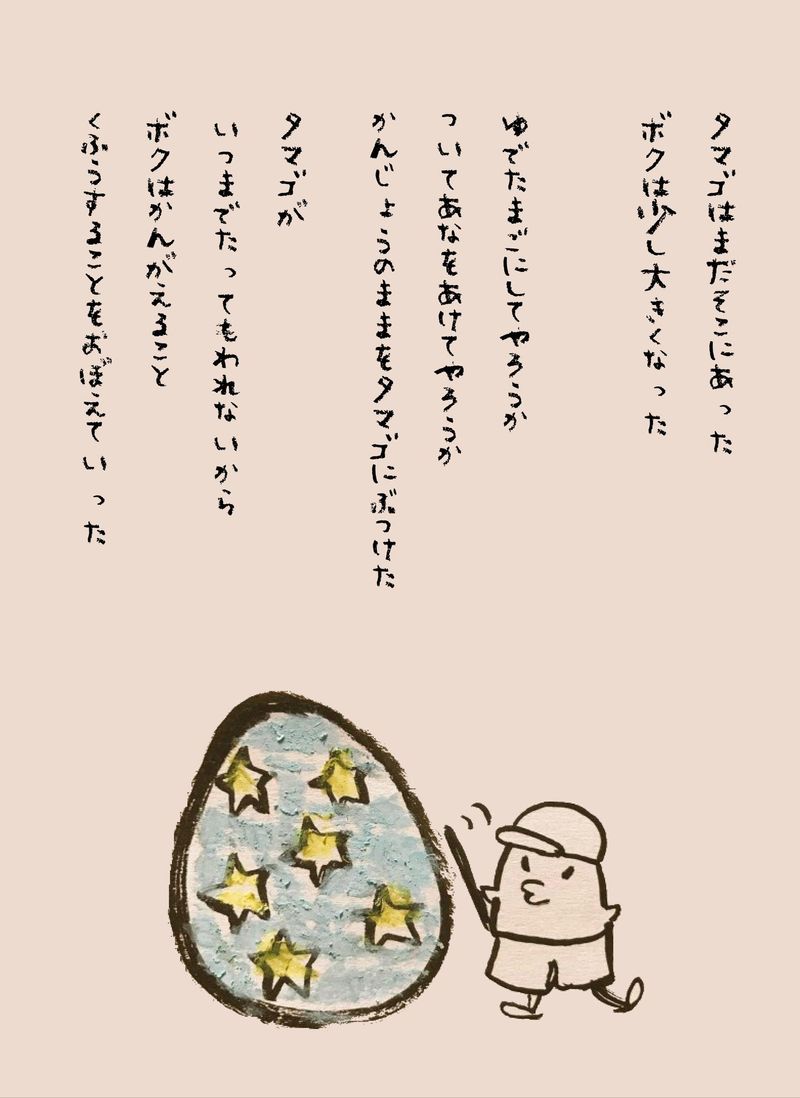 タマゴはまだそこにあった
ボクは少し大きくなった
ゆでたまごにしてやろうか
ついてあなをあけてやろうか
かんじょうのままをタマゴにぶつけた
タマゴが
いつまでたってもわれないから
ボクはかんがえること
くふうすることをおぼえていった